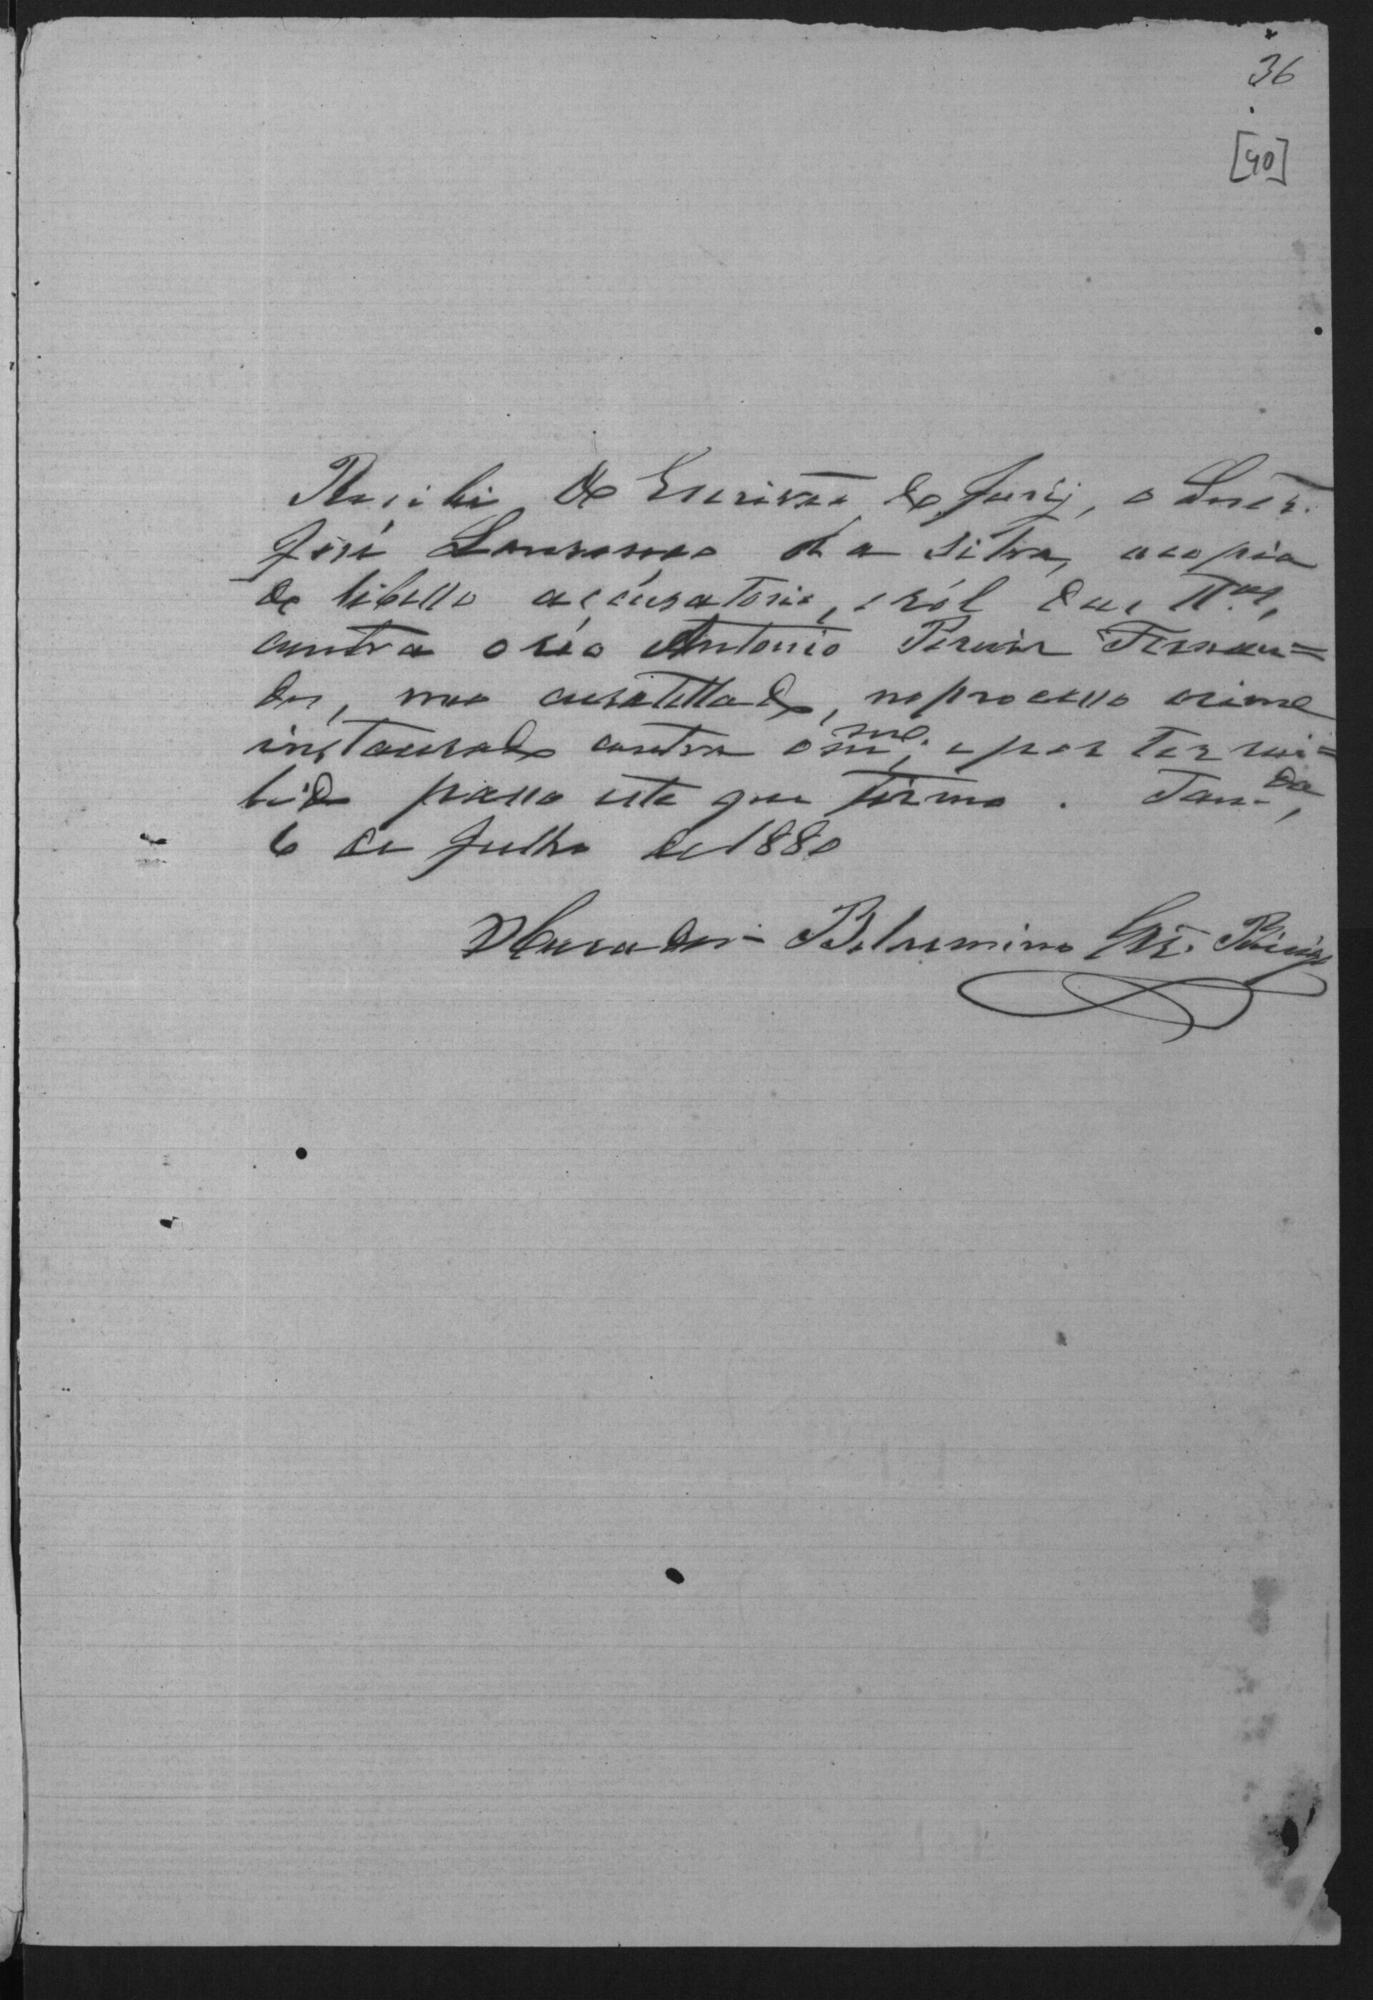 36
[40]
Recibi do Escrivão do Jury, o
José Lourenço da Silva, a copia
do libello accusatorio, e ról das Tt.as,
contra o réo Antonio Pereira Fernan=
des, meo curatellado, no processo crime
instaurado contra o m.mo; e por ter rece=
bido passo este que firmo.
6 de Julho de 1880
O Curador - Belarmino